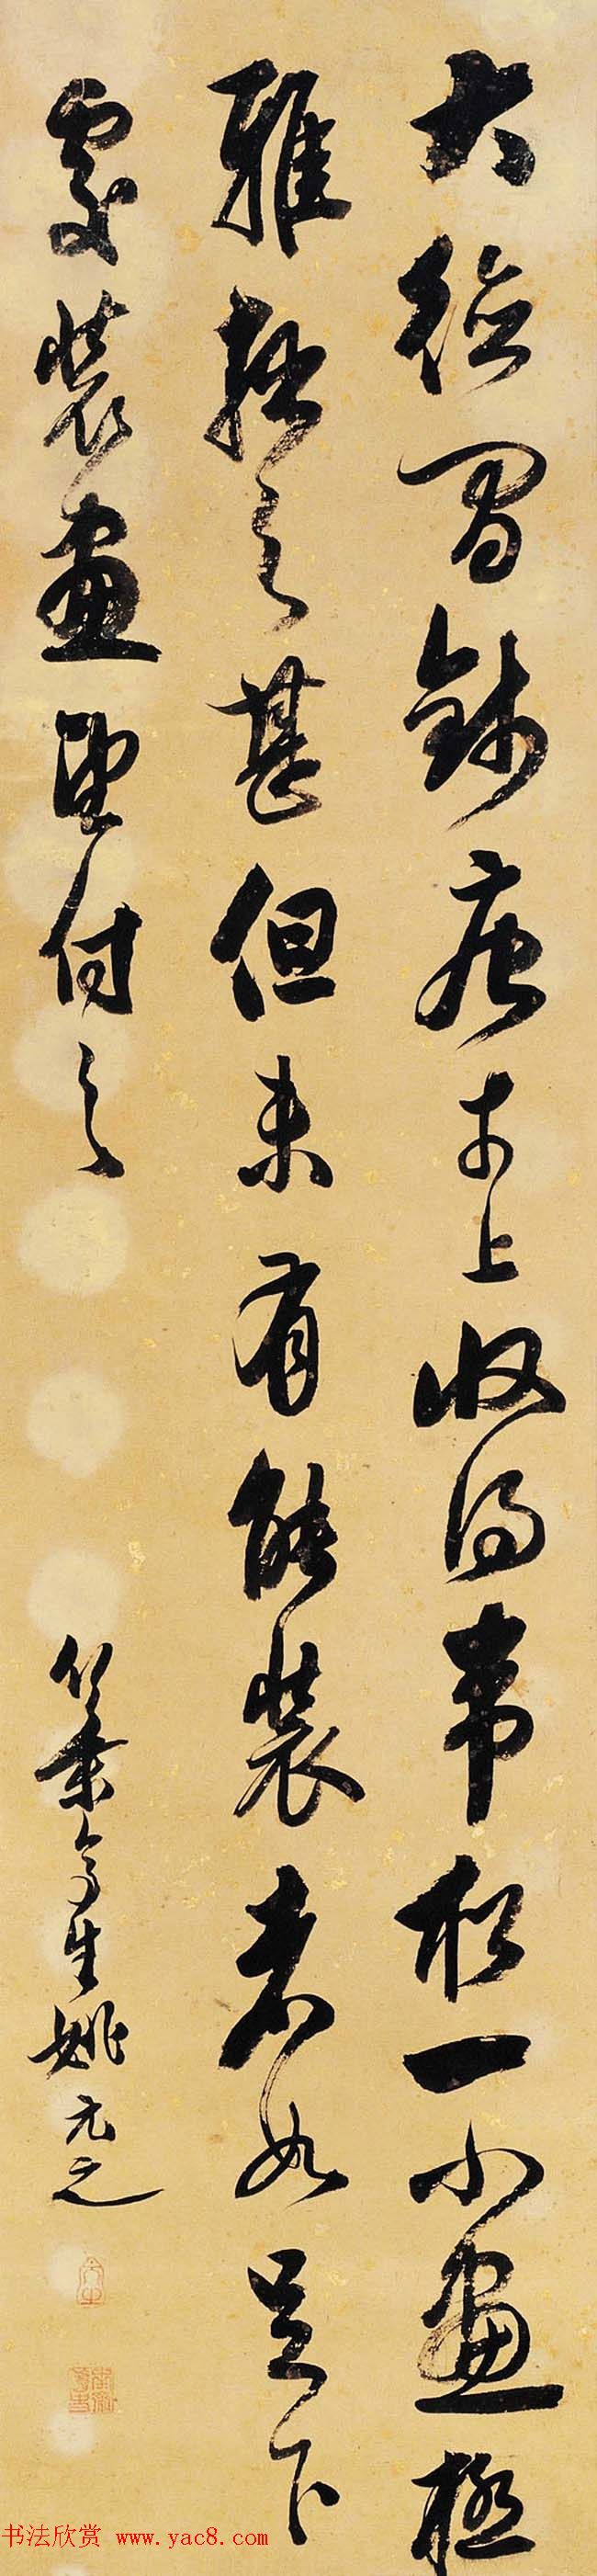 大德間錢唐市上收得韋一小畫極
雅之甚但未有能裝者如足下
處裝畫望付之
竹葉亭生姚元之
书法欣赏 www.yac8.com